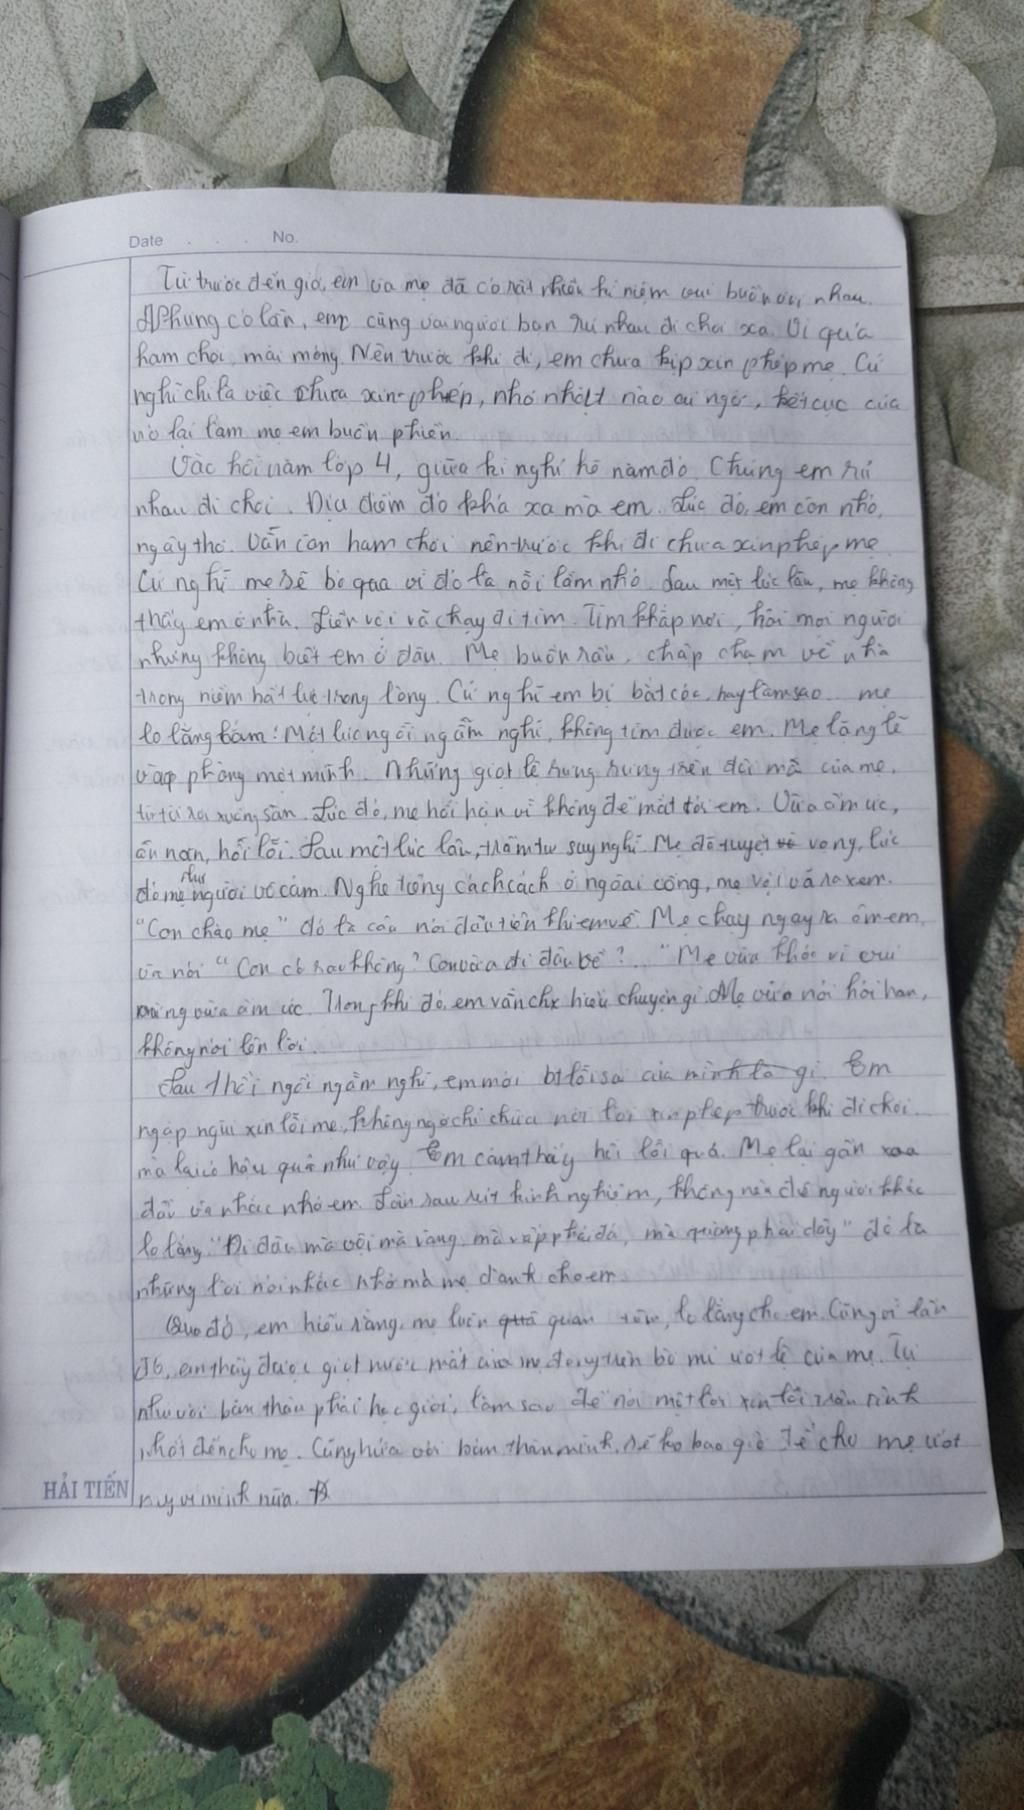 Date . . . No.
Từ trước đến giờ, em và mẹ đã có rất nhiều kỉ niệm vui buồn với nhau.
Nhưng có lần, em cùng vài người bạn rủi nhau đi chơi xa. Vì quá
ham chơi, mải mông. Nên trước khi đi, em chưa kịp xin phép mẹ. Cứ
nghĩ chỉ là việc chưa xin phép, nhỏ nhặt nào ai ngờ, kết cục của
nó lại làm mẹ em buồn phiền.
Vào hồi năm lớp 4, giữa kì nghỉ hè năm đó. Chúng em rủ
nhau đi chơi. Địa điểm đó khá xa mà em. Lúc đó, em còn nhỏ,
ngây thơ. Vẫn còn ham chơi nên trước khi đi chưa xin phép mẹ.
Cứ nghĩ mẹ sẽ bỏ qua vì đó là nỗi lầm nhỏ. Sau một lúc lâu, mẹ không
thấy em ở nhà. Liền vội vã chạy đi tìm. Tìm khắp nơi, hỏi mọi người
nhưng không biết em ở đâu. Mẹ buồn rầu, chập chạm về nhà
trong niềm bất lực trong lòng. Cứ nghĩ em bị bắt cóc, hay làm sao... mẹ
lo lắng lắm! Một lúc ngồi ngẫm nghĩ, không tìm được em. Mẹ lặng lẽ
vào phòng một mình. Những giọt lệ rưng rưng trên đôi mắ của mẹ,
từ từ rơi xuống sàn. Lúc đó, mẹ hối hận vì không để mắt tới em. Vừa ấm ức,
ăn nan, hối lỗi. Sau một lúc lâu, trầm tư suy nghĩ. Mẹ đã tuyệt vọng, lúc
đó mẹ như người vô cảm. Nghe tiếng cách cách ở ngoài cổng, mẹ vội vã ra xem.
"Con chào mẹ" đó là câu nói đầu tiên khi em về. Mẹ chạy ngay ra ôm em,
và nói "Con có sao không? Con vừa đi đâu về?..." Mẹ vừa khóc vì vui
mừng vừa ấm ức. Trong khi đó, em vẫn chx hiểu chuyện gì. Mẹ vừa nói hối hận,
không nói lên lời.
Sau thời ngồi ngẫm nghĩ, em mới bt lỗi sai của mình là gì. Em
ngập ngùi xin lỗi mẹ, không ngờ chỉ chưa nói lời xin phép trước khi đi chơi
mà lại có hậu quả như vậy. Em cảm thấy hối lỗi quá. Mẹ lại gần xoa
đầu và nhắc nhở em. Lần sau rút kinh nghiệm, không nên để người khác
lo lắng. "Đi đâu mà vội mà vàng, mà vấp phải đá, mà quàng phải dây" đó là
những lời nói nhắc nhở mà mẹ dành cho em.
Qua đó, em hiểu rằng, mẹ luôn quan tâm, lo lắng cho em. Cũng vì lần
đó, em thấy được giọt nước mắt của mẹ đọng trên bờ mi ướt lệ của mẹ. Tự
nhủ với bản thân phải học giỏi, làm sao để nói một lời xin lỗi chân
đến cho mẹ. Cũng hứa với bản thân mình, sẽ ko bao giờ để cho mẹ ướt
vì mình nữa.
HẢI TIẾN